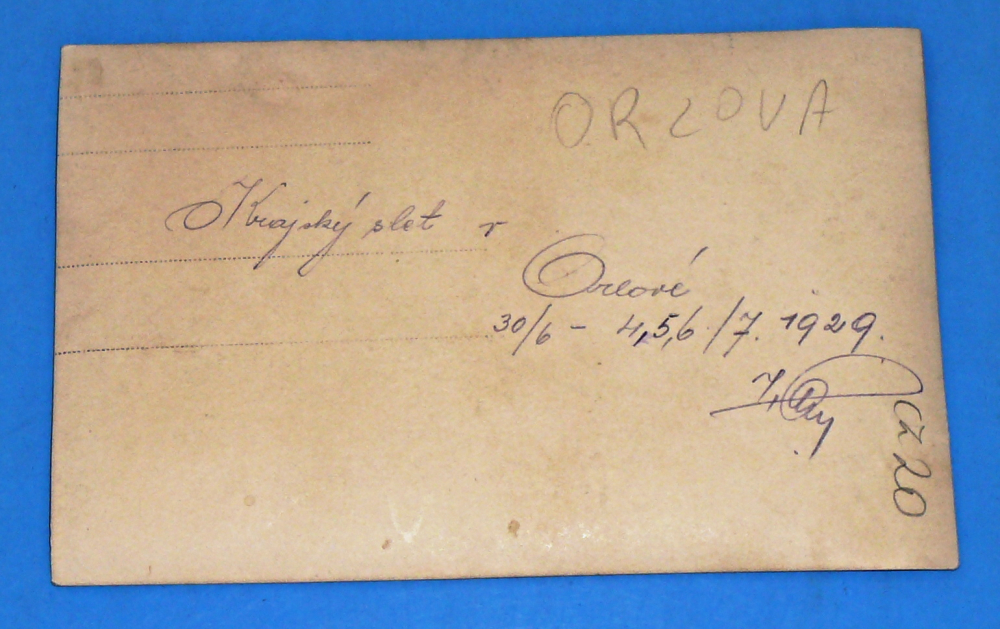 ORLOVA
Krajský slet v
Orlové
30/6 - 4,5,6/7. 1929.
CZ 20